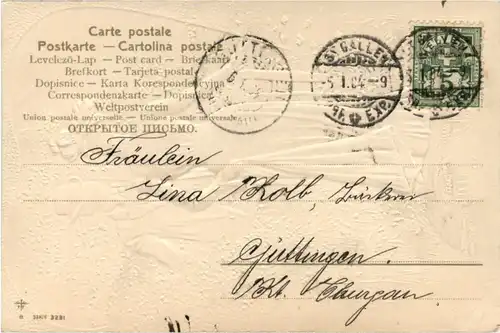 Carte postale
Postkarte — Cartolina postale
Levelező-Lap — Post card — Briefkaart
Brefkort — Tarjeta postal
Dopisnice — Karta Korespondencyjna
Correspondenzkarte — Dopisnica
Weltpostverein
Union postale universelle — Unione postale universale
ОТКРЫТОЕ ПИСЬМО.
ST. GALLEN
5. I. 04. - 9
BRF. EXP.
Fräulein
Lina Kolb, Bäckerei
Güttingen
Kt. Thurgau